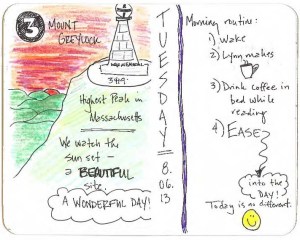 3
MOUNT
GREYLOCK
3491
Highest Peak in
Massachusetts
We watch the
sun set -
a BEAUTIFUL
site.
A WONDERFUL DAY!
TUESDAY
8.
06.
13
Morning routine:
1) Wake
2) Lynn makes
3) Drink coffee in
bed while
reading
4) EASE
into the
DAY!
Today is no different.